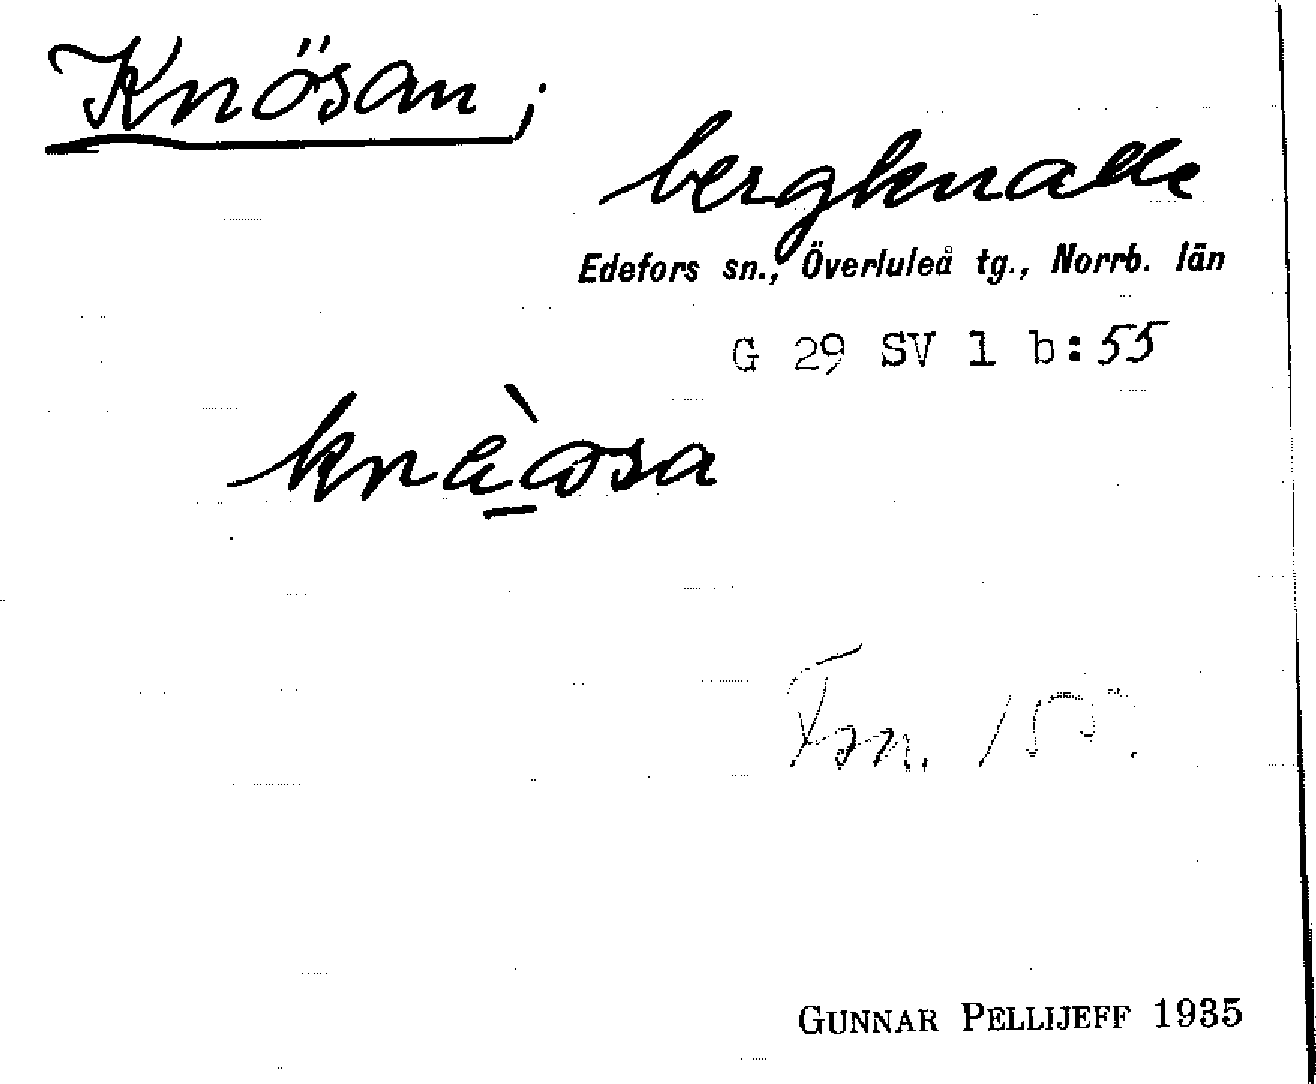 Knösan;
bergknalle
Edefors sn., Överluleå tg., Norrb. län
G 29 SV 1 b:55
155.
GUNNAR PELLIJEFF 1935